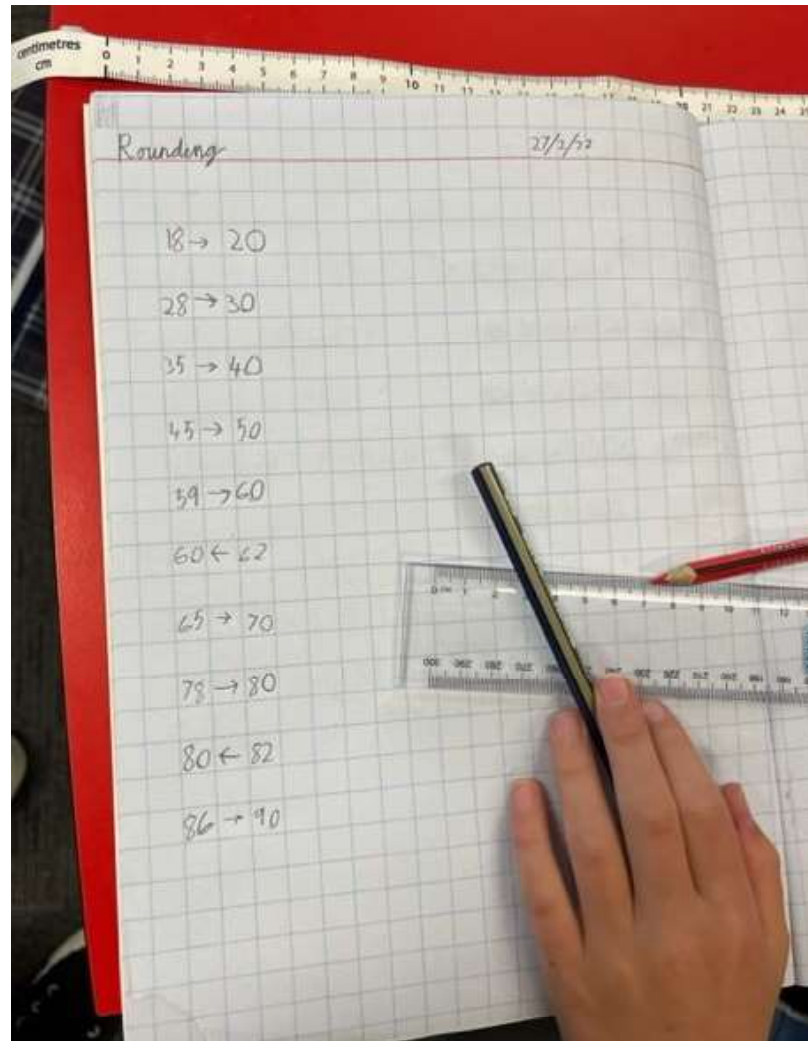 centimetres
cm
0 1 2 3 4 5 6 7 8 9 10 11 12 21 22 23 24 25
Rounding 27/2/22
18 → 20
28 → 30
35 → 40
45 → 50
59 → 60
60 ← 62
65 → 70
78 → 80
80 ← 82
86 → 90